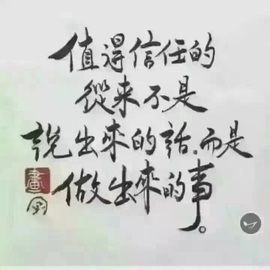 值得信任的
從来不是
說出來的話,而是
做出來的事。
畫